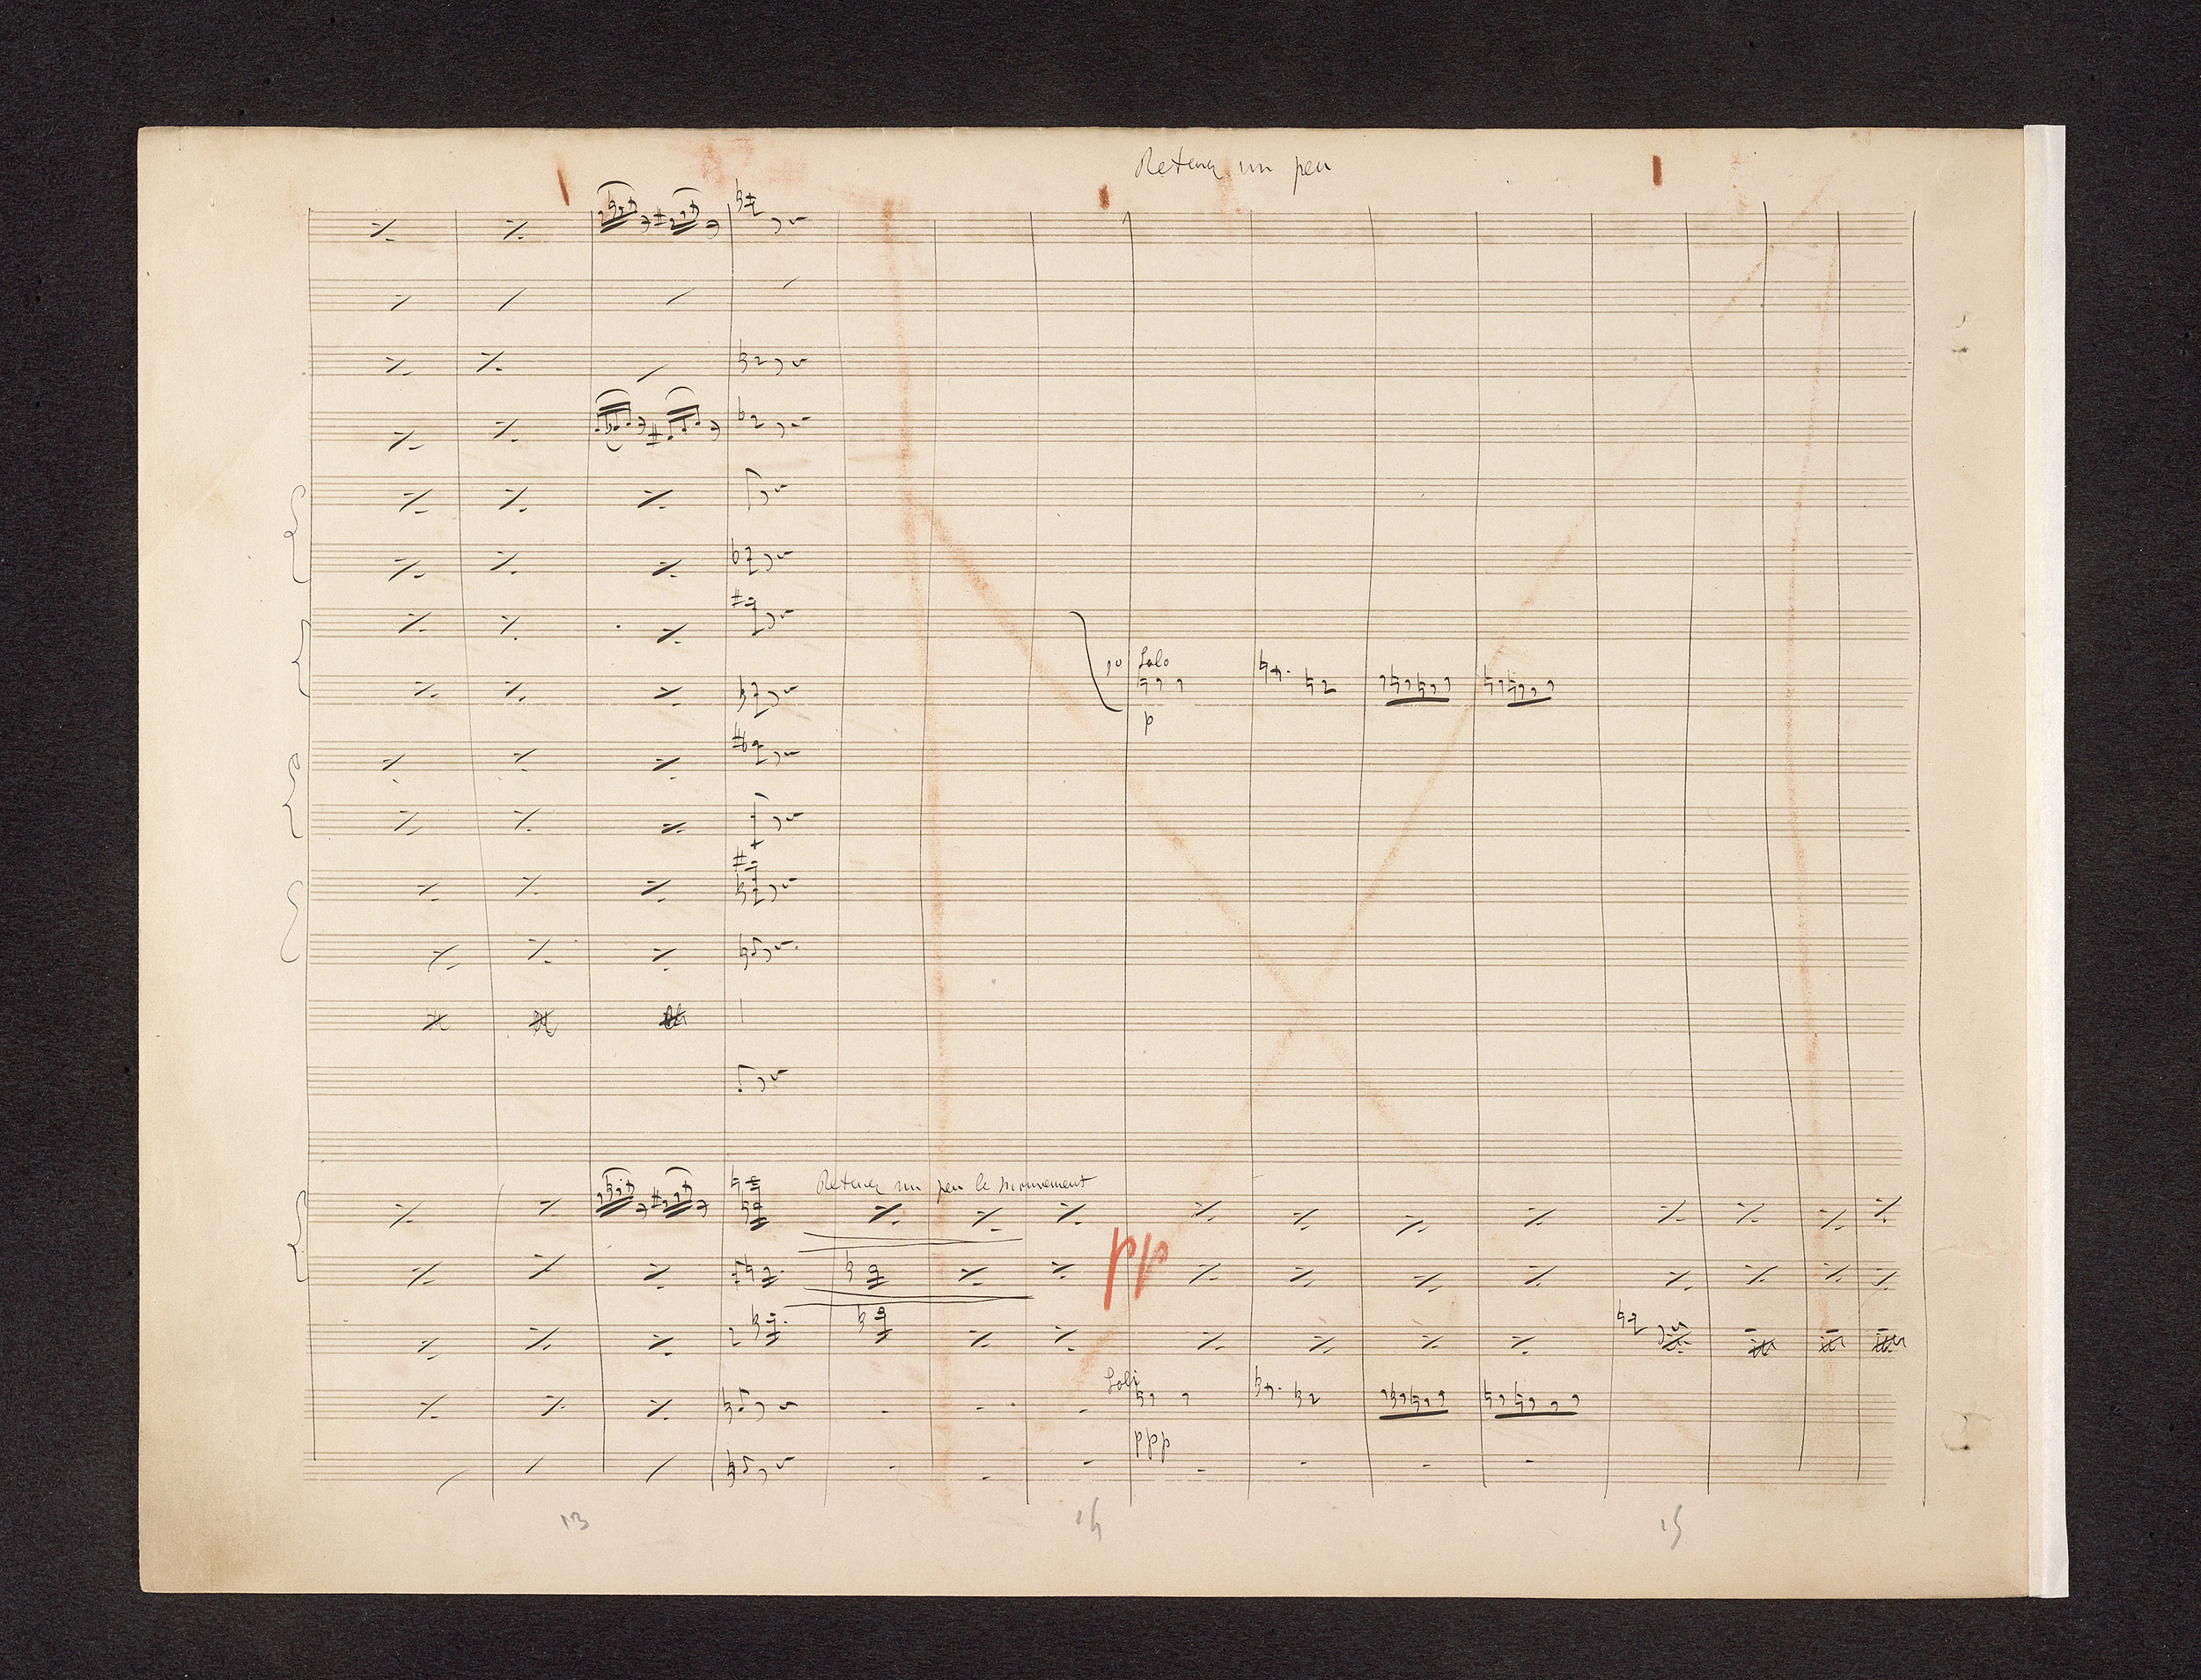 Retenez un peu
1o Solo
p
Retenez un peu le mouvement
pp
Soli
ppp
13 14 15